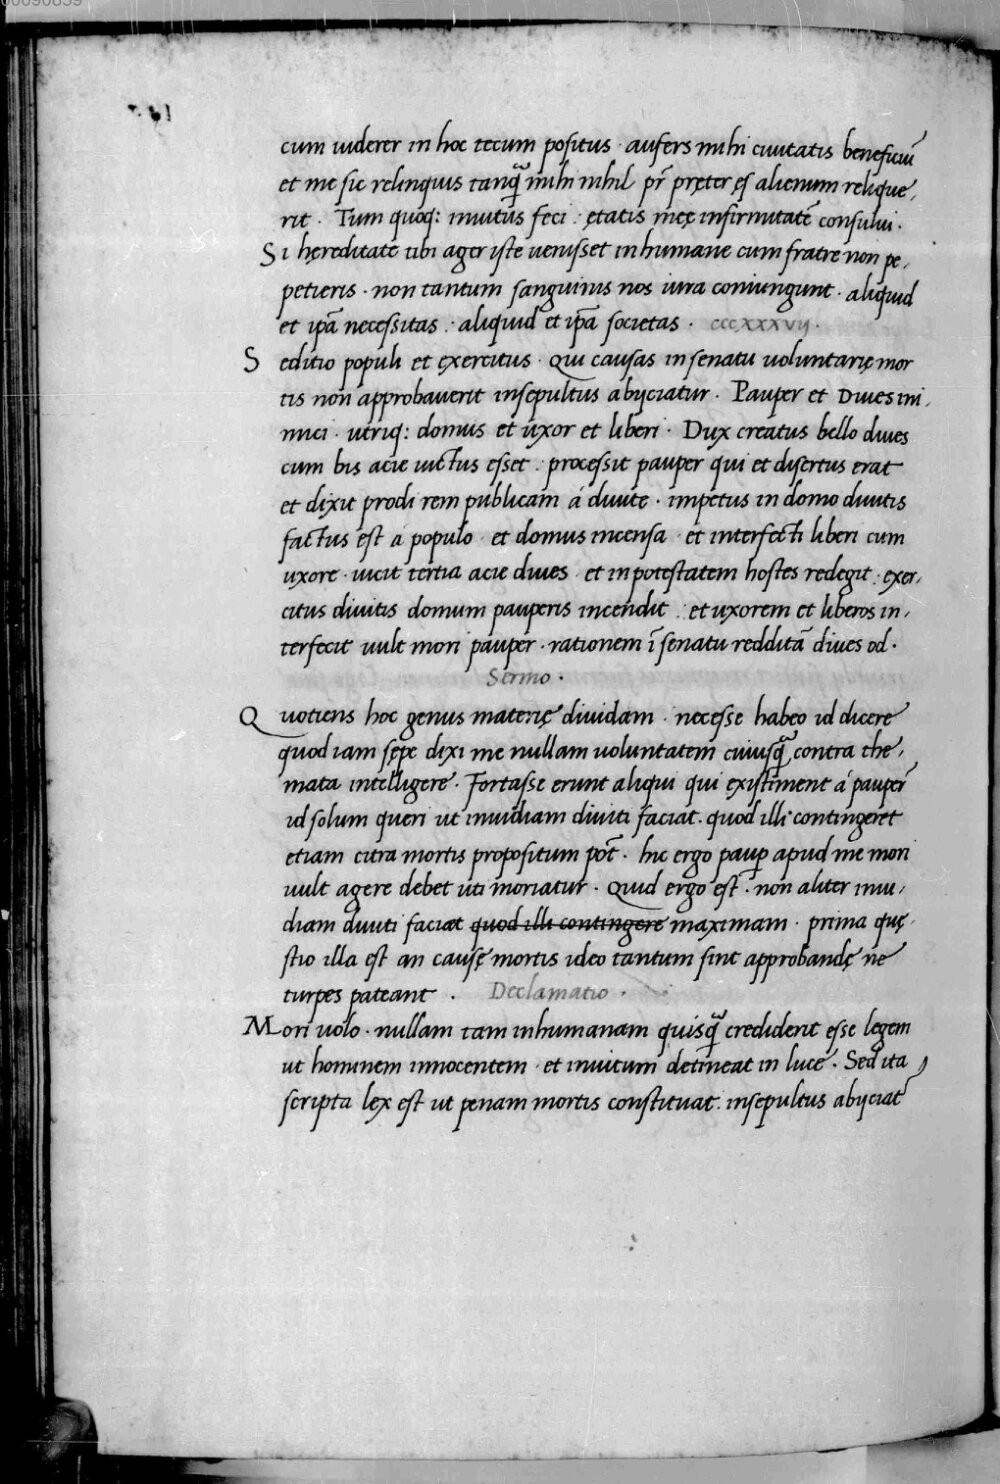 00090839
cum uiderer in hoc tecum positus · aufers mihi ciuitatis beneficiũ
et me sic relinquis tanqᷓ mihi nihil pr̃ pręter ęs alienum relique,
rit · Tum quoq: inuitus feci : ętatis męę infirmitatẽ consului ·
Si hęreditate tibi ager iste uenisset inhumane cum fratre non pe,
petieris · non tantum sanguinis nos iura coniungunt · aliquid
et ipã necessitas : aliquid et ipã societas · cccxxxvij ·
Seditio populi et exercitus · Qui causas in senatu voluntarię mor
tis non approbauerit insepultus abijciatur · Pauper et Diues ini,
mici · utriq: domus et uxor et liberi · Dux creatus bello diues
cum bis acie uictus esset : processit pauper qui et disertus erat
et dixit prodi rem publicam á diuite · impetus in domo diuitis
factus est á populo · et domus incensa · et interfecti liberi cum
uxore · uicit tertia acie diues · et in potestatem hostes redegit : exer,
citus diuitis domum pauperis incendit : et uxorem et liberos in,
terfecit uult mori pauper · rationem ĩ senatu redditã diues od ·
Sermo ·
Quotiens hoc genus materię diuidam · necesse habeo id dicere
quod iam sępe dixi me nullam uoluntatem cuiusqᷓ contra the,
mata intelligere · Fortasse erunt aliqui qui existiment á pauper̃
id solum queri ut inuidiam diuiti faciat · quod illi contingeret
etiam citra mortis propositum põt · hic ergo paup apud me mori
uult agere debet uti moriatur · Quid ergo est · non aliter inui,
diam diuiti faciat quod illi contingere maximam · prima quę,
stio illa est an causę mortis ideo tantum sint approbandę ne
turpes pateant · Declamatio ·
Mori uolo · nullam tam inhumanam quisqᷓ crediderit esse legem
ut hominem innocentem · et inuitum detineat in luce · Sed ita
scripta lex est ut penam mortis constituat · insepultus abijciat̃